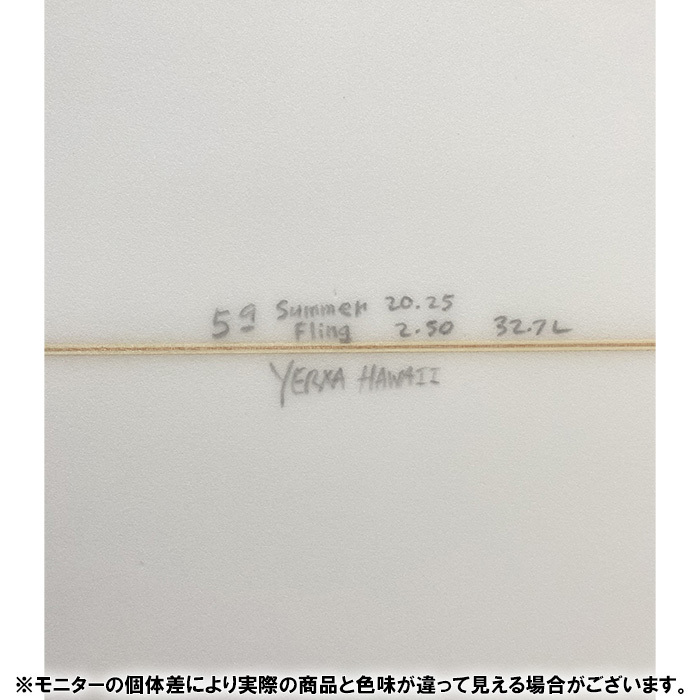 5 9 Summer 20.25
Fling 2.50 32.7L
YERXA HAWAII
※モニターの個体差により実際の商品と色味が違って見える場合がございます。